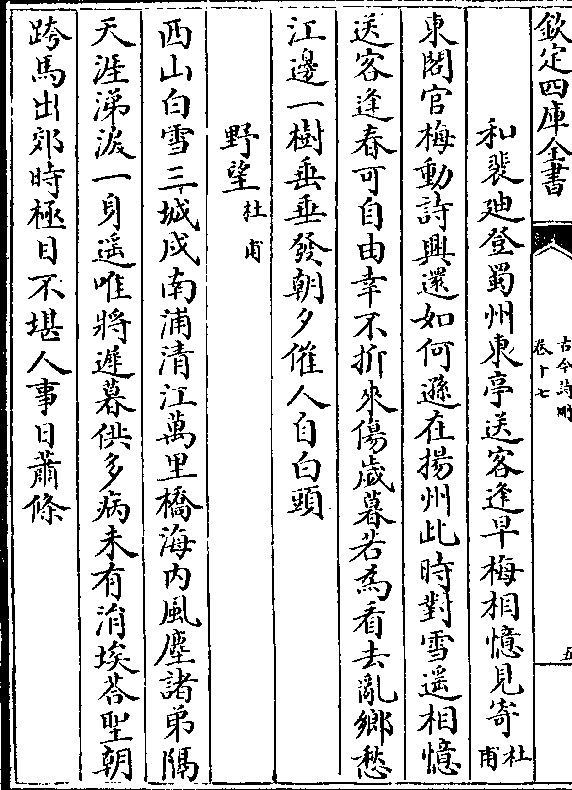 欽定四庫全書
古今詩刪
卷十七
五
和裴廸登蜀州東亭送客逢早梅相憶見寄 杜甫
東閣官梅動詩興還如何遜在揚州此時對雪遥相憶
送客逢春可自由幸不折來傷歳暮若為看去亂鄉愁
江邊一樹垂垂發朝夕催人自白頭
野望 杜甫
西山白雪三城戍南浦清江萬里橋海内風塵諸弟隔
天涯涕淚一身遥唯將遲暮供多病未有涓埃荅聖朝
跨馬出郊時極目不堪人事日蕭條